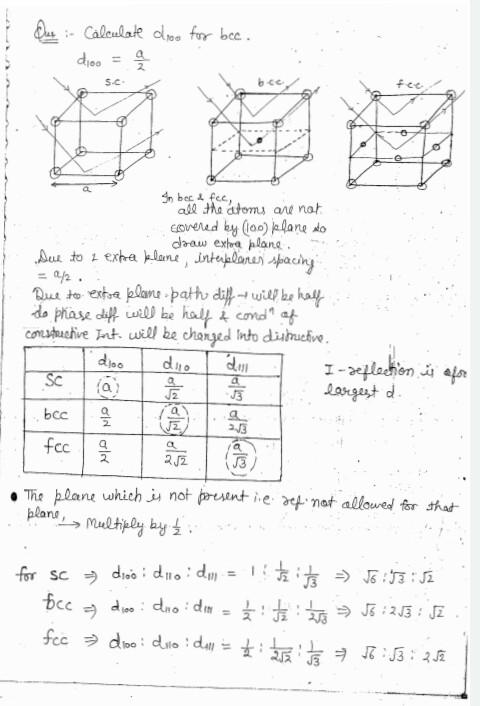 Que :- Calculate d₁₀₀ for bcc.
d₁₀₀ = a/2
s.c. bcc. fcc.
a
In bcc & fcc,
all the atoms are not
covered by (100) plane so
draw extra plane.
Due to 1 extra plane, interplaner spacing
= a/2.
Due to extra plane path diff → will be half
so phase diff will be half & condⁿ of
constructive Int. will be changed into distructive.
d₁₀₀ d₁₁₀ d₁₁₁
SC (a) a/√2 a/√3
bcc a/2 (a/√2) a/2√3
fcc a/2 a/2√2 (a/√3)
I - reflection is for
largest d.
• The plane which is not present i.e. ref. not allowed for that
plane,
→ Multiply by 1/2.
for sc ⇒ d₁₀₀ : d₁₁₀ : d₁₁₁ = 1 : 1/√2 : 1/√3 ⇒ √6 : √3 : √2
bcc ⇒ d₁₀₀ : d₁₁₀ : d₁₁₁ = 1/2 : 1/√2 : 1/2√3 ⇒ √6 : 2√3 : √2
fcc ⇒ d₁₀₀ : d₁₁₀ : d₁₁₁ = 1/2 : 1/2√2 : 1/√3 ⇒ √6 : √3 : 2√2